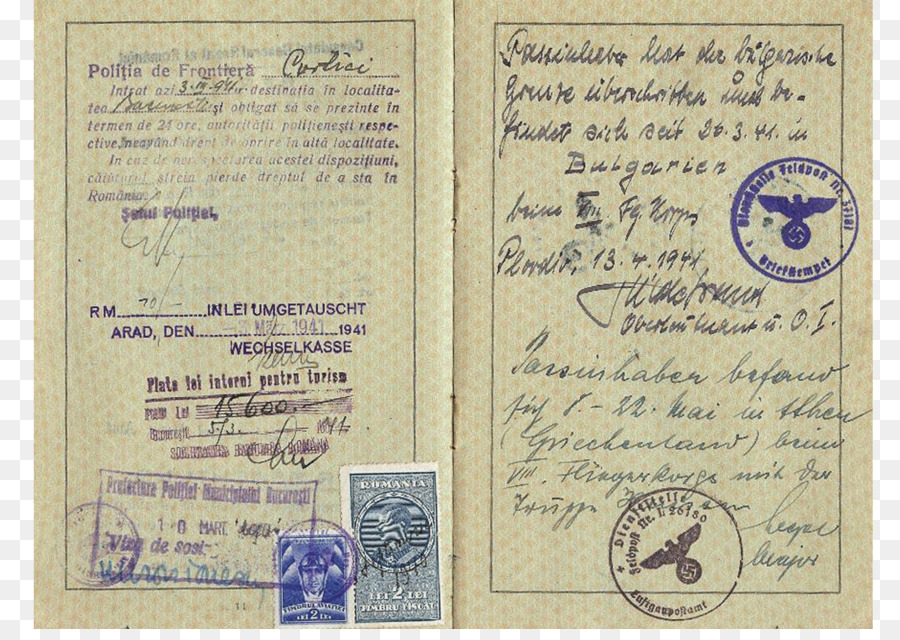 Poliția de Frontieră
Intrat azi 3. III. 941. destinația în localita-
tea și obligat să se prezinte în
termen de 24 ore, autorității polițienești respe-
ctive, neavând drept de oprire în altă localitate.
In caz de nerespectarea acestei dispozițiuni,
călătorul strein pierde dreptul de a sta în
România.
Șeful Poliției,
RM 70/- IN LEI UMGETAUSCHT
ARAD, DEN MRZ. 1941 1941
WECHSELKASSE
Plata lei interni pentru turism
Lei 15600.-
București 5/3. 1941
Prefectura Poliției Municipiului București
10 MART. 1941
Viza de sosi
ROMANIA
2 LEI 2 LEI
TIMBRU FISCAL
TIMBRUL AVIAȚIEI
LEI 2 LEI
11
Passinhaber hat die bulgarische
Grenze überschritten und be-
findet sich seit 26.3.41. in
Bulgarien
beim VIII. Flg. Korps
Plovdiv, 13.4.1941
Oberleutnant u. O. I.
Dienststelle Feldpost Nr.
Briefstempel
Passinhaber befand
sich 8.-22. Mai in Athen
(Griechenland) beim
VIII. Fliegerkorps mit der
Truppe
Major
Dienststelle
Feldpost Nr. L 26180
Luftgaupostamt